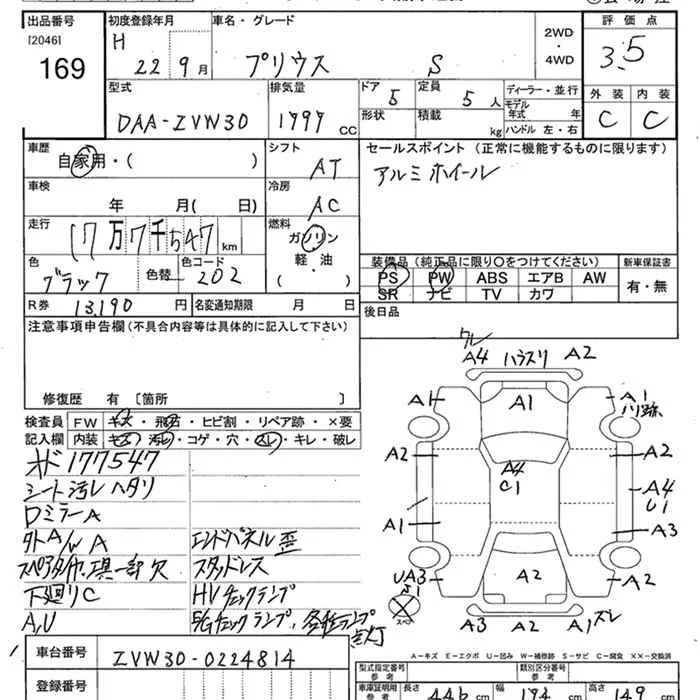 出品番号 初度登録年月 車名・グレード 評価点
[2046] H 22 9月 プリウス S 2WD・4WD 3.5
169
型式 排気量 ドア 5 定員 5人 ディーラー・並行 外装 内装
DAA-ZVW30 1797 CC 形状 積載 kg モデル年式 年 C C
ハンドル 左・右
車歴 シフト セールスポイント (正常に機能するものに限ります)
自家用・( ) AT アルミホイール
車検 冷房
年 月( 日) AC
走行 燃料
17万7千547 km ガソリン
軽・油
( )
色 色替 色コード 装備品(純正品に限り○をつけてください) 新車保証書
ブラック 202 PS PW ABS エアB AW 有・無
SR ナビ TV カワ
R券 13,190 円 名変通知期限 月 日 後日品
注意事項申告欄(不具合内容等は具体的に記入して下さい)
修復歴 有 〔箇所 〕
検査員 FW キズ・飛石・ヒビ割・リペア跡・×要
記入欄 内装 キズ・汚レ・コゲ・穴・スレ・キレ・破レ
オド 177547
シート汚レ ハタリ
ロミラーA
外A/W A エンドパネル歪
スペアタイヤ、工具一部欠 スタッドレス
下廻りC HVチェックランプ
A,U E/Gチェックランプ、各種ランプ点灯
クレ
A4 ハラスリ A2
A1 A1 A1
ハリ跡
A2 A2
A4
C1
A4
U1
A1 A3
UA3
S1
A2 A2
スペア
A3 A2 A1 ズレ
A-キズ E-エクボ U-凹み W-補修跡 S-サビ C-腐食 XX-交換済
車台番号 ZVW30-0224814
登録番号
型式指定番号 類別区分番号
車庫証明用 長さ 446 cm 幅 174 cm 高さ 149 cm